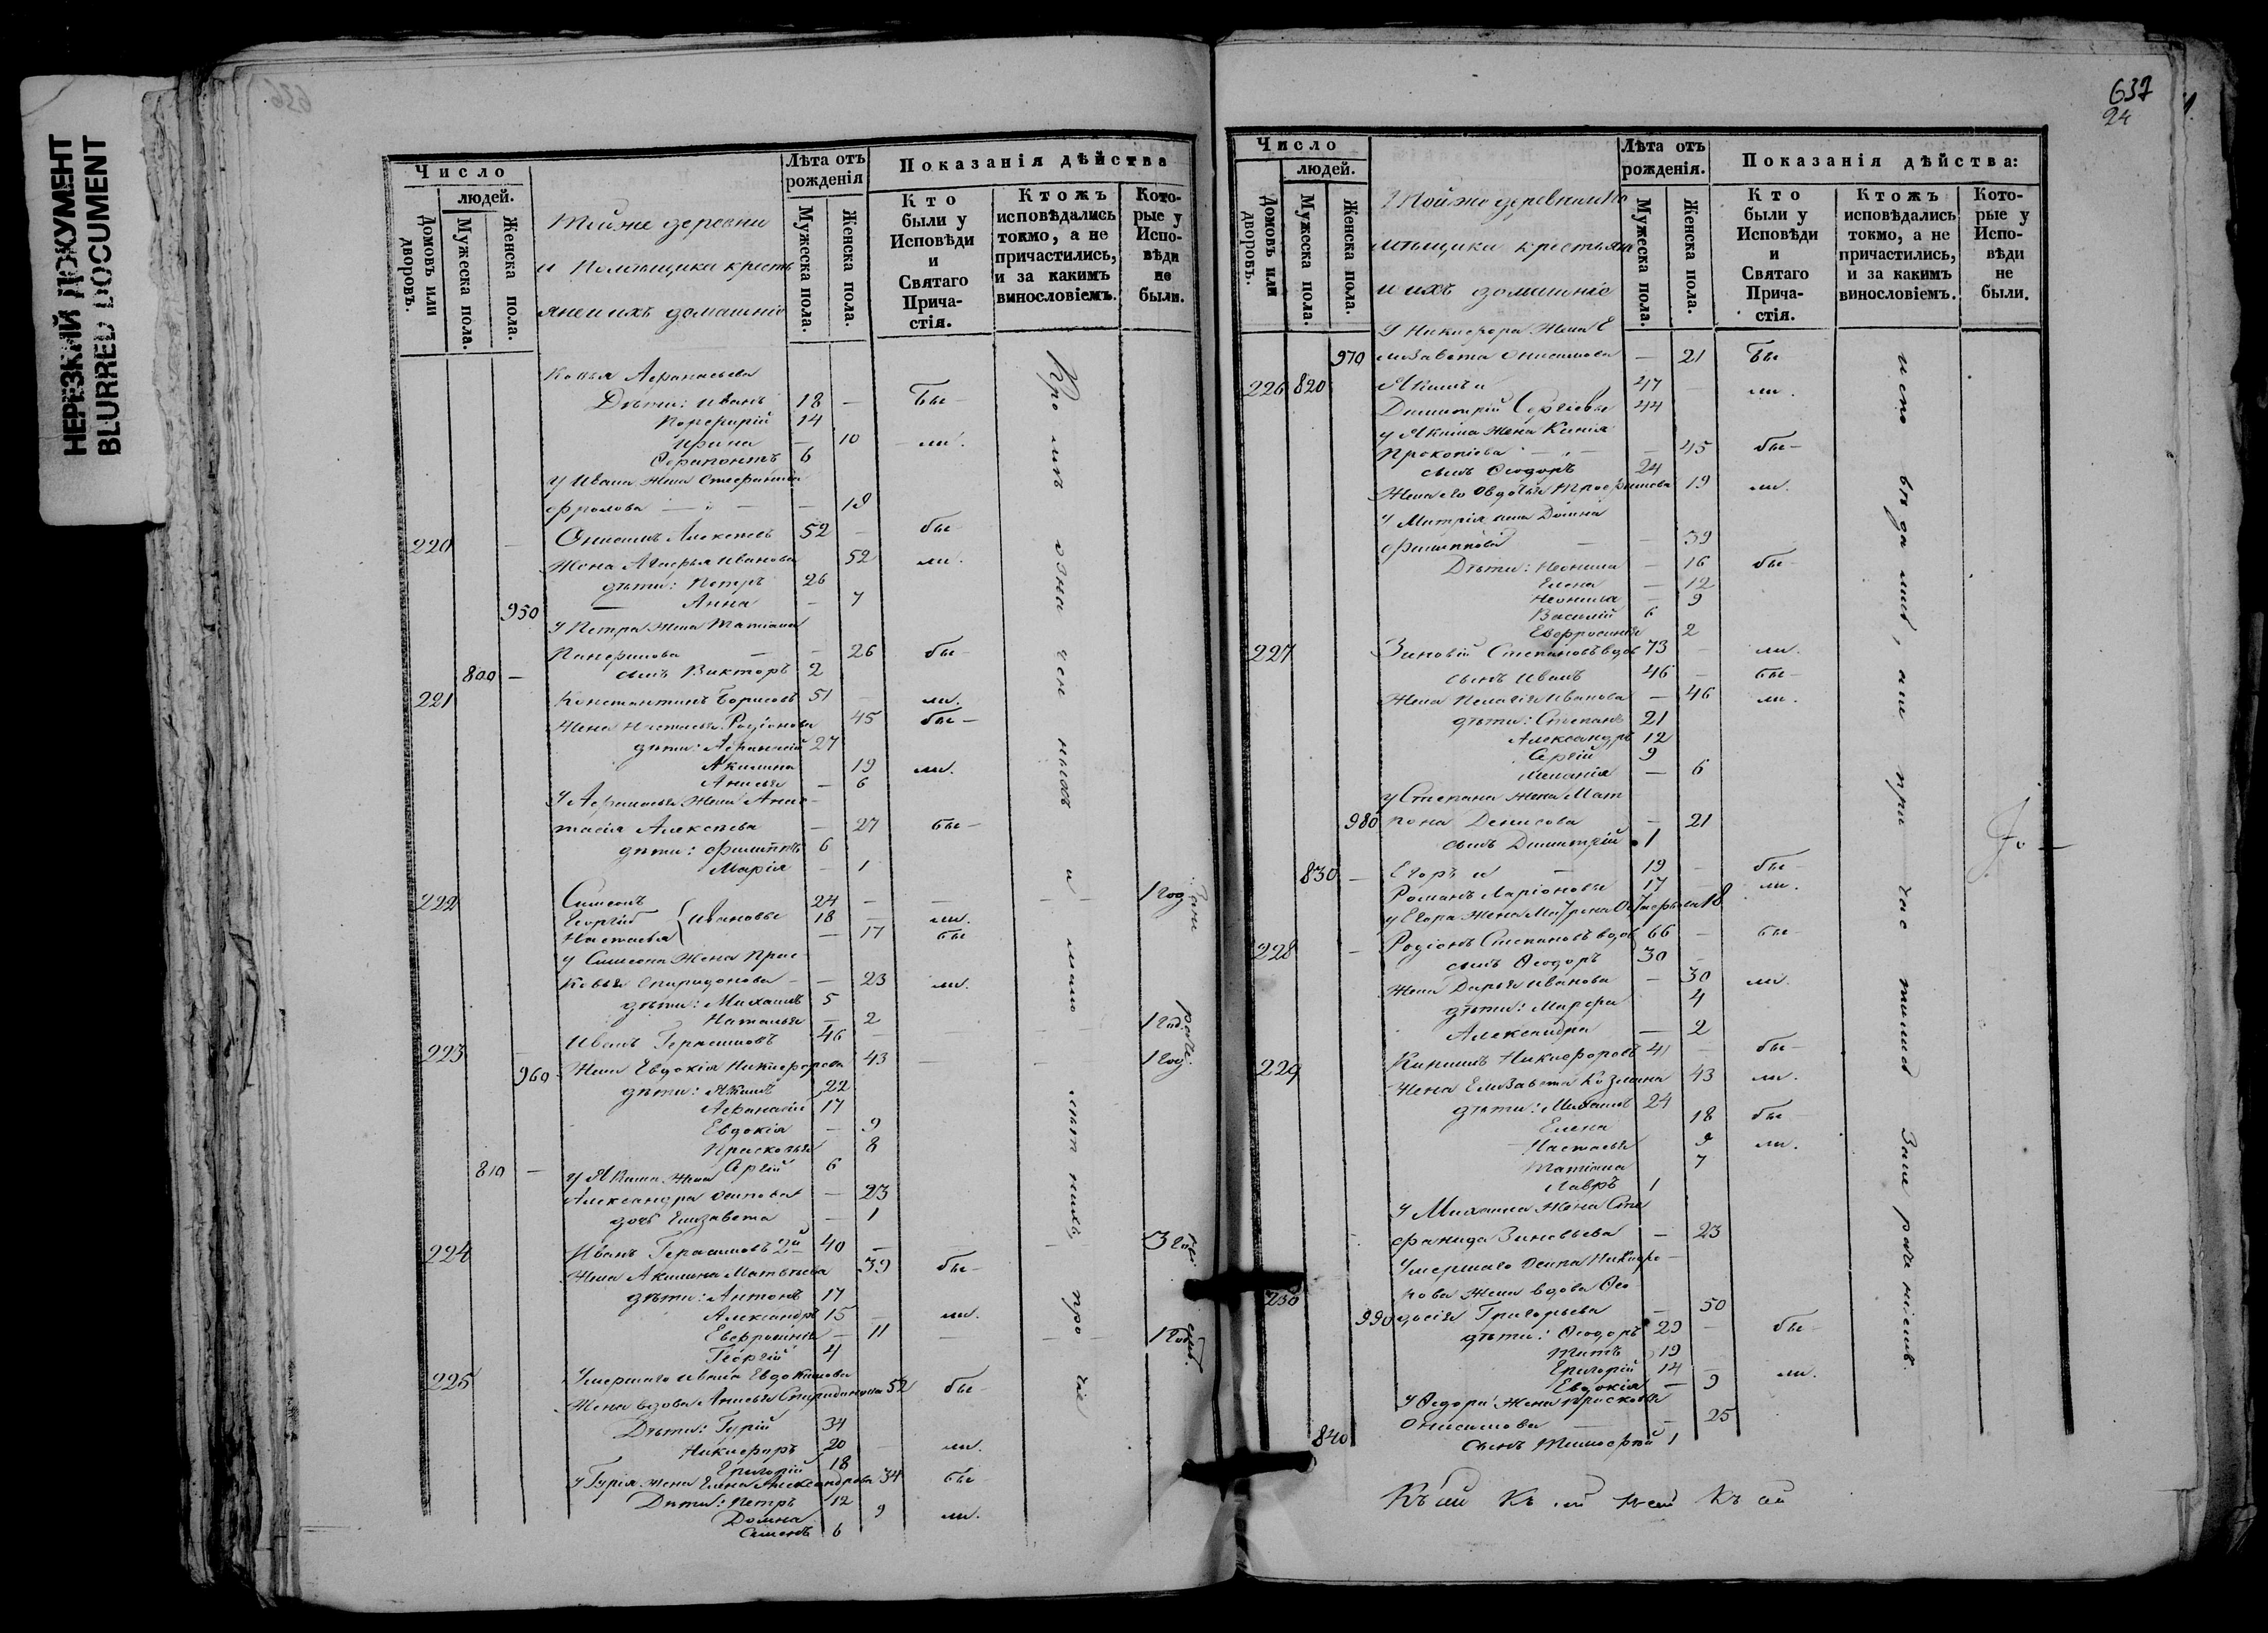 НЕРЕЗКИЙ ДОКУМЕНТ
BLURRED DOCUMENT
636
Число
людей.
Домовъ или дворовъ.
Мужеска пола.
Женска пола.
Тойже деревни
и Помѣщика кресть
яне и ихъ домашніе
Лѣта отъ рожденія
Мужеска пола.
Женска пола.
Показанія дѣйства
Кто были у Исповѣди и Святаго Причастія.
Ктожъ исповѣдались токмо, а не причастились, и за какимъ винословіемъ.
Которые у Исповѣди не были.
Афанасьева
Дѣти: Иванъ 18 — Бы-
Порфирій 14
Ирина — 10 — ли.
Ферапонтъ 6
У Ивана жена Стефанида
Фролова — — 19
220 Онисимъ Алексѣевъ 52 — бы-
Жена Агафья Иванова 52 ли.
дѣти: Петръ 26
950 Анна — 7
У Петра жена Татіана
Панфилова — — 26 бы-
800 — сынъ Викторъ 2
221 Константинъ Борисовъ 51 — ли.
Жена Настасья Родіонова 45 бы-
дѣти: Афанасій 27
Акилина 19 ли.
Анисья — 6
У Афанасья жена Анас-
тасія Алексѣева — 27 бы-
дѣти: Филиппъ 6
Марія — 1
222 Симеонъ 24 — — — 1 год
Георгій } Ивановы 18 — ли.
Настасья — 17 бы
у Симеона жена Прас-
ковья Спиридонова — — 23 ли.
дѣти: Михаилъ 5
Наталья — 2
223 Иванъ Герасимовъ 46 — — — 1 год.
960 Жена Евдокія Никифорова 43 — — 1 год.
дѣти: Якимъ 22
Афанасій 17
Евдокія — 9
Прасковья 8
810 — Сергій 6
у Якима жена
Александра Осипова — 23
дочь Елизавета — 1
224 Иванъ Герасимовъ 2й 40 — — 3 го
Жена Акилина Матвѣева 39 бы-
дѣти: Антонъ 17
Александръ 15 — ли.
Евфросинія — 11 — — 1 годъ.
Георгій 4
225 Умершаго Ивана Евдокимова
Жена вдова Анисья Спиридонова 52 бы-
Дѣти: Гурій 34
Никифоръ 20 — ли.
Григорій 18
у Гурія жена Елена Александрова 34 бы-
Дѣти: Петръ 12
Домна 9 ли.
Симеонъ 6
Кро мѣ озна чен ныхъ и мало лѣт нихъ, про чіе
637
24
Число
людей.
Домовъ или дворовъ.
Мужеска пола.
Женска пола.
Тойже деревни По
мѣщика крестьяне
и ихъ домашніе
Лѣта отъ рожденія.
Мужеска пола.
Женска пола.
Показанія дѣйства:
Кто были у Исповѣди и Святаго Причастія.
Ктожъ исповѣдались токмо, а не причастились, и за какимъ винословіемъ.
Которые у Исповѣди не были.
У Никифора жена Е
970 лизавета Онисимова — 21 бы
226 820 Якимъ и 47 — ли.
Димитрій Сергіевы 44
у Якима жена Ксенія
Прокопіева — — 45 бы-
сынъ Ѳеодоръ 24
Жена его Овдотья Трофимова 19 ли.
У Митрія жена Домна
Филиппова — — 39
Дѣти: Неонила — 16 бы-
Елена — 12
Неонила — 9
Василій 6
Евфросинія 2
227 Зиновій Степановъ вдов 73 — ли.
сынъ Иванъ 46 — бы-
Жена Пелагія Иванова — 46 ли.
дѣти: Степанъ 21
Александръ 12
Сергій 9
Меланія — 6
у Степана жена Мат
980 рона Денисова — 21
сынъ Димитрій 1
830 — Егоръ и — 19 — бы-
Романъ Ларіоновы 17 — ли.
у Егора жена Матрена 18
228 — Родіонъ Степановъ вдов 66 — бы-
сынъ Ѳеодоръ 30
Жена Дарья Иванова — 30 ли.
дѣти: Марфа 4
Александра — 2
229 Никифоровъ 41 — бы-
Жена Елизавета Козмина 43 ли.
дѣти: Михаилъ 24
Елена 18 бы-
Настасья 9 ли.
Татіана 7
Лавръ 1
У Михаила жена Сте
фанида Зиновьева — 23
230 Умершаго Осипа Никифо-
рова жена вдова Ѳео
990 досія Григорьева — 50
дѣти: Ѳеодоръ 29 — бы-
Титъ 19
Григорій 14 — ли.
Евдокія — 9
У Ѳедора жена Прасковья
Онисимова — — 25
840 сынъ Тимофей 1
испо вѣда лись, а не при час тились За не раче ніемъ.